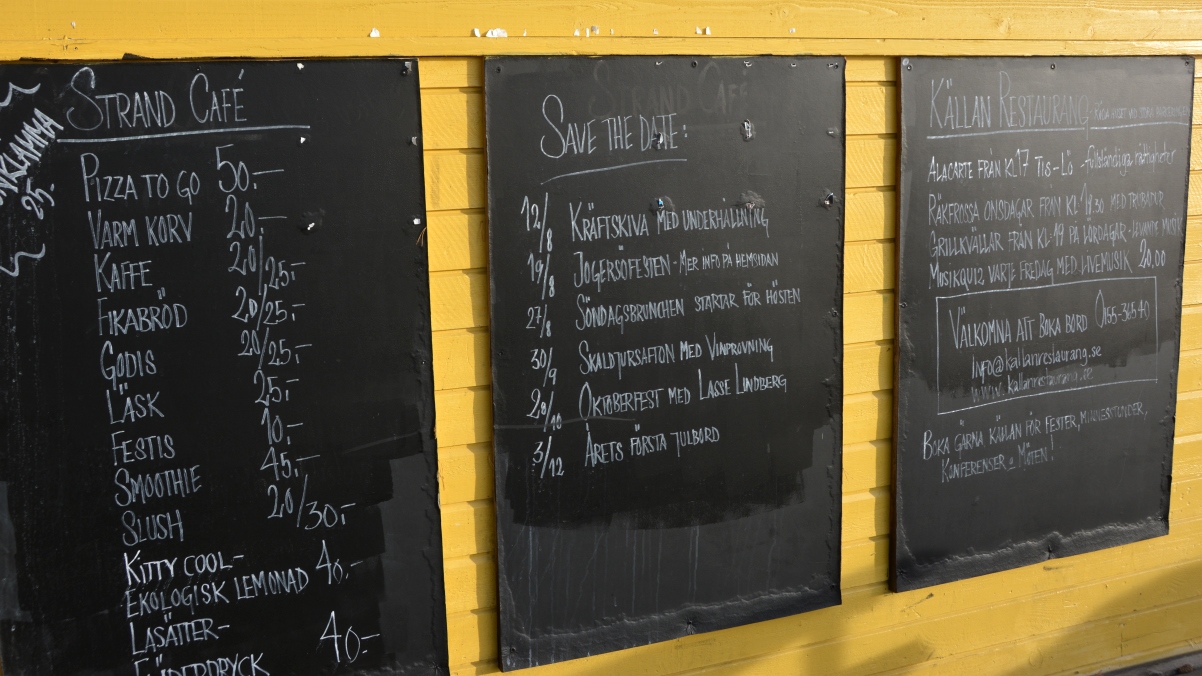 STRAND CAFÉ
25.-
PIZZA TO GO 50.-
VARM KORV 20.-
KAFFE 20/25.-
FIKABRÖD 20/25.-
GODIS 20/25.-
LÄSK 25.-
FESTIS 10.-
SMOOTHIE 45.-
SLUSH 20/30.-
KITTY COOL-
EKOLOGISK LEMONAD 40.-
LASÄTTER-
FLÄDERDRYCK 40-
STRAND CAFÉ
SAVE THE DATE:
12/8 KRÄFTSKIVA MED UNDERHÅLLNING
19/8 JOGERSÖFESTEN - MER INFO PÅ HEMSIDAN
27/8 SÖNDAGSBRUNCHEN STARTAR FÖR HÖSTEN
30/9 SKALDJURSAFTON MED VINPROVNING
28/10 OKTOBERFEST MED LASSE LINDBERG
3/12 ÅRETS FÖRSTA JULBORD
KÄLLAN RESTAURANG
ALACARTE FRÅN KL 17 TIS-LÖ - fullständiga rättigheter
RÄKFROSSA ONSDAGAR FRÅN KL 18.30 MED TRUBADUR
GRILLKVÄLLAR FRÅN KL 19 PÅ LÖRDAGAR - LEVANDE MUSIK
MUSIKQUIZ VARJE FREDAG MED LIVEMUSIK 20.00
VÄLKOMNA ATT BOKA BORD 0155-36540
Info@kallanrestaurang.se
www.kallanrestaurang.se
BOKA GÄRNA KÄLLAN FÖR FESTER, MINNESSTUNDER,
KONFERENSER & MÖTEN!